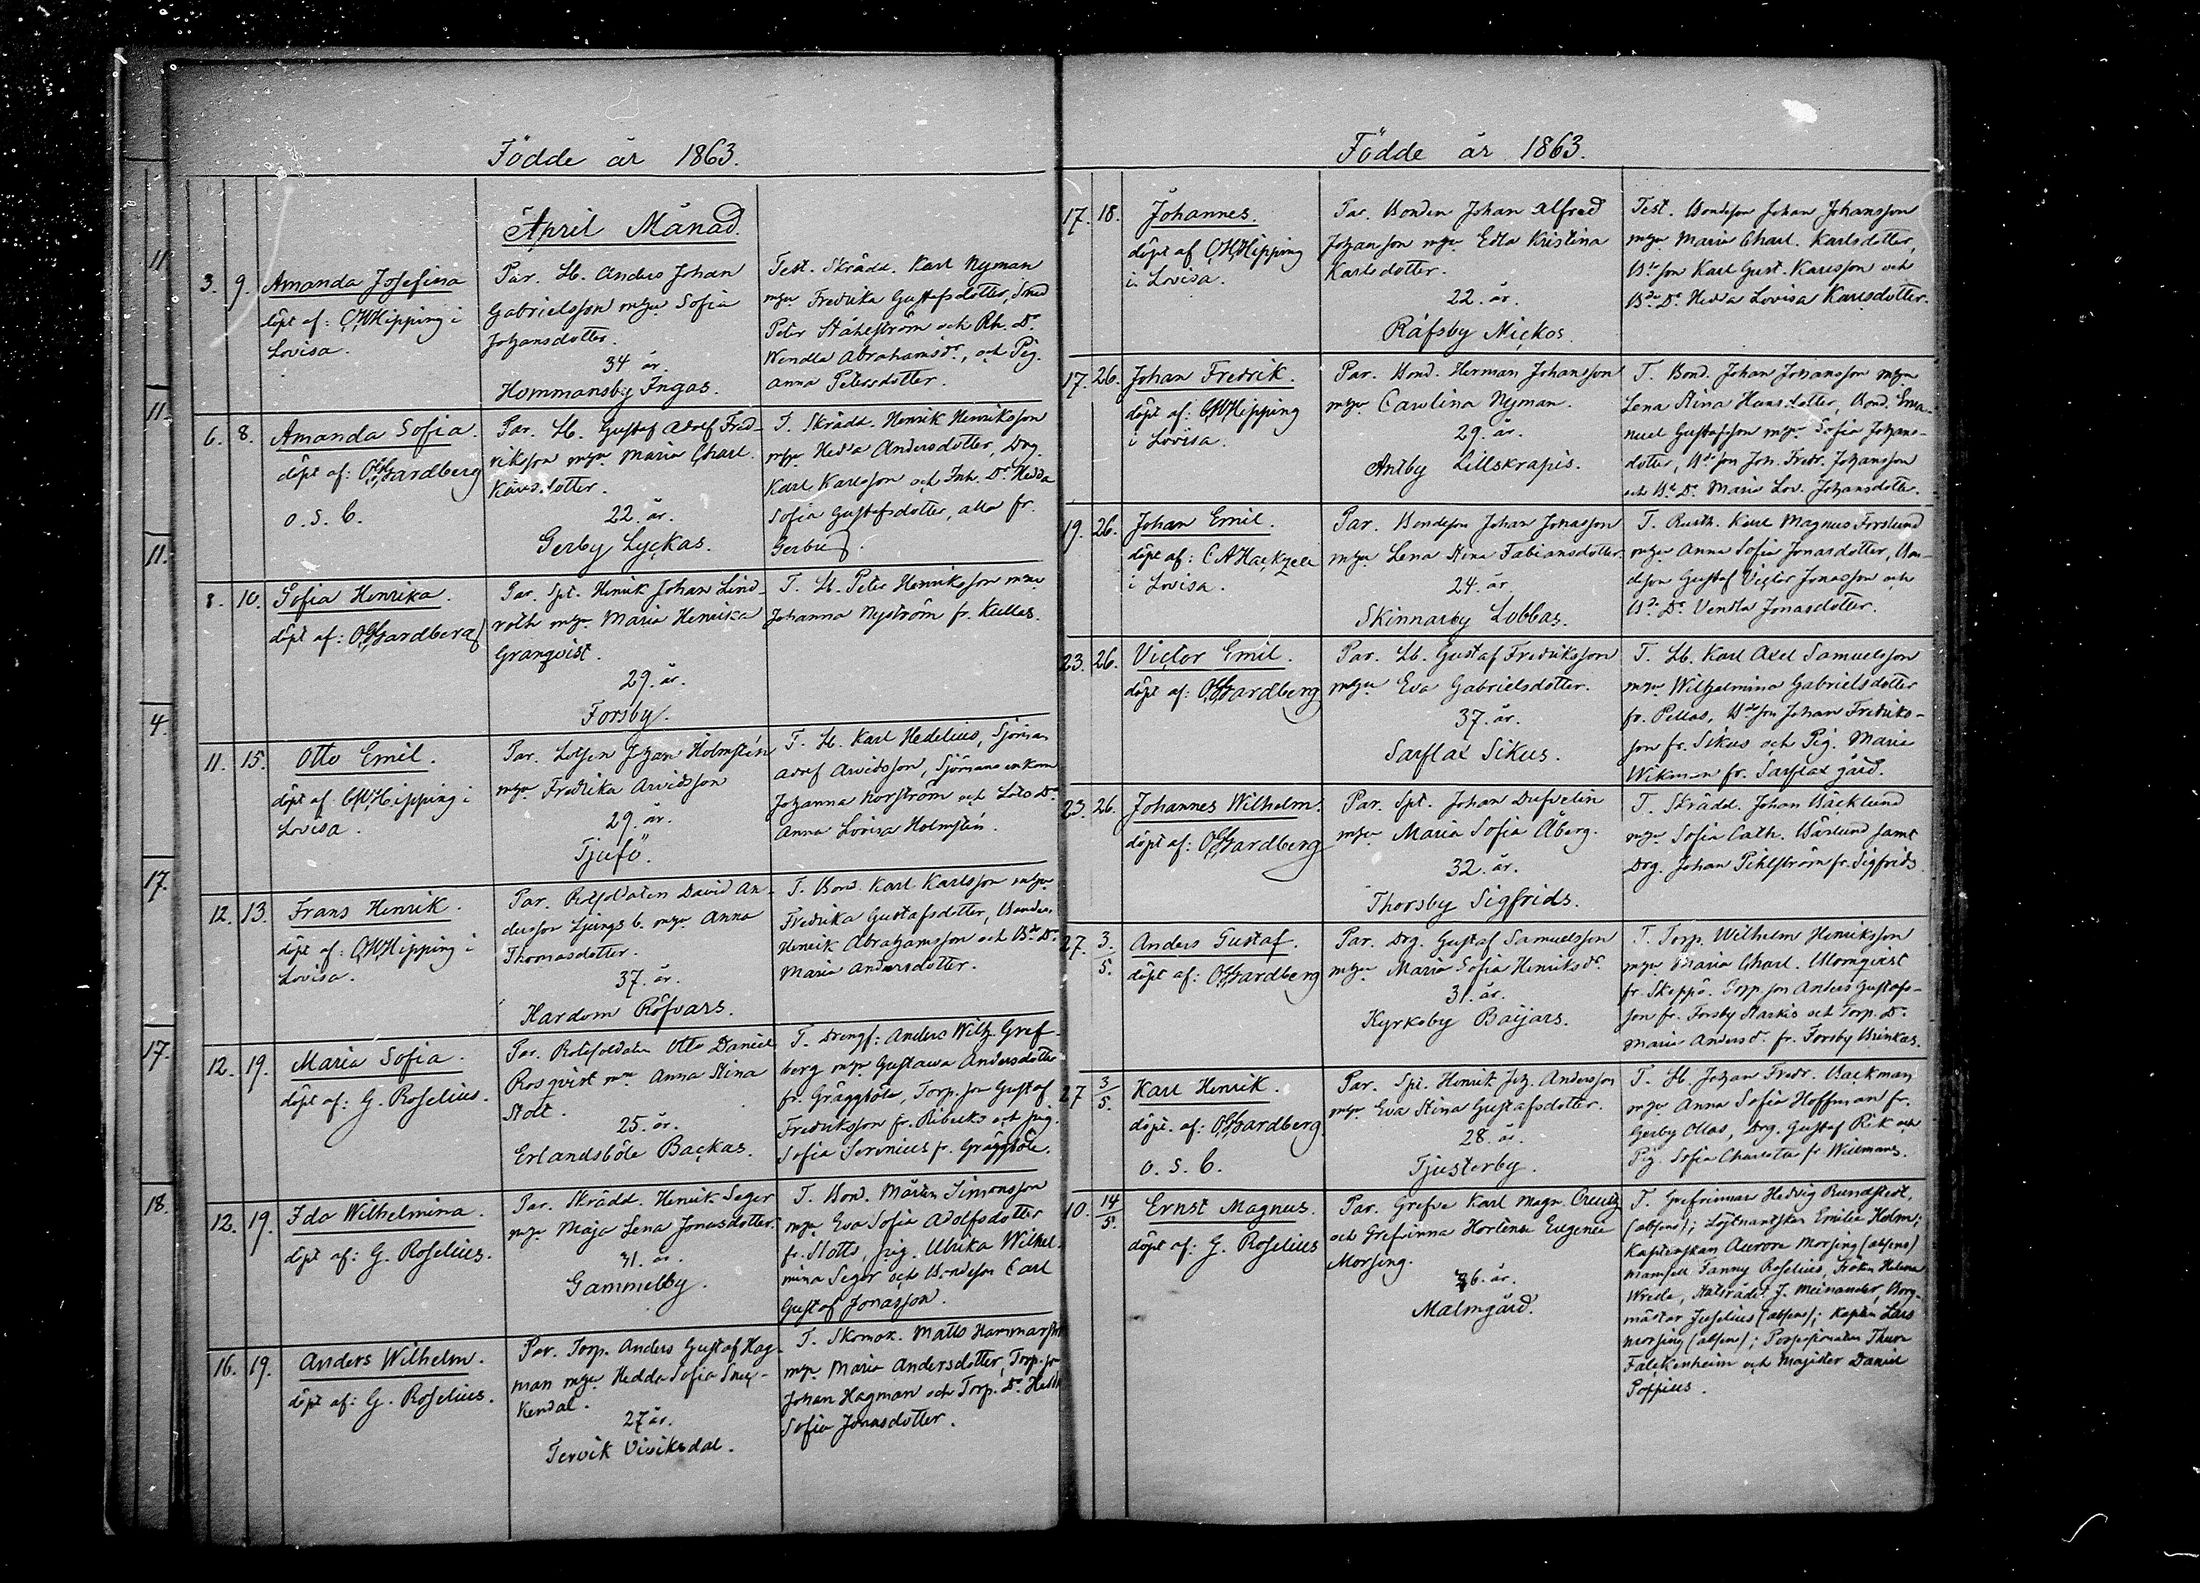 Födde år 1863.
April Månad.
3. 9. Amanda Josefina
döpt af: CWHipping i
Lovisa.
Par. Lb. Anders Johan
Gabrielsson mhu Sofia
Johansdotter.
34 år.
Hommansby Ingas.
Test. Skrädd. Karl Nyman
mhu Fredrika Gustafsdotter, Smed
Peter Ståhlström och Rh. Dr.
Wendla Abrahamsdr., och Pig.
Anna Petersdotter.
6. 8. Amanda Sofia.
döpt af: OGardberg
o. s. b.
Par. Lb. Gustaf Adolf Fred-
riksson mhu Maria Charl.
Karlsdotter.
22. år.
Gerby Lyckas.
T. Skrädd. Henrik Henriksson
mhu Hedda Andersdotter, Drg.
Karl Karlsson och Inh. Dr. Hedda
Sofia Gustafsdotter, alla fr.
Gerby.
8. 10. Sofia Henrika.
döpt af: OGardberg
Par. Spt. Henrik Johan Lind-
roth mhu Maria Henrika
Granqvist.
29. år.
Forsby.
T. Lb. Peter Henriksson mhu
Johanna Nyström fr. Kullas.
11. 15. Otto Emil.
döpt af CWHipping i
Lovisa.
Par. Lotsen Johan Holmstén
mhu Fredrika Arvidsson
29. år.
Tjufö.
T. Lb. Karl Hedelius, Sjöman
Adolf Arvidsson, Sjömansenkan
Johanna Korström och Lots Dr.
Anna Lovisa Holmstén.
12. 13. Frans Henrik.
döpt af: CWHipping i
Lovisa.
Par. Rotsoldaten David An-
dersson Ljungb. mhu Anna
Thomasdotter.
37. år.
Hardom Röfvars.
T. Bond. Karl Karlsson mhu
Fredrika Gustafsdotter, Bonden
Henrik Abrahamsson och Bd. Dr.
Maria Andersdotter.
12. 19. Maria Sofia.
döpt af: G. Roselius.
Par. Rotesoldaten Otto Daniel
Rosqvist mhu Anna Stina
Stolt.
25. år.
Erlandsböle Backas.
T. Drengs: Anders Wilh. Gref-
berg mhu Gustawa Andersdotter
fr. Gräggböle, Torp. son Gustaf
Fredriksson fr. Ribacks och pig.
Sofia Serenius fr. Gräggböle.
12. 19. Ida Wilhelmina.
döpt af: G. Roselius.
Par. Skrädd. Henrik Seger
mhu Maja Lena Jonasdotter.
31. år.
Gammelby.
T. Bond. Mårten Simonsson
mhu Eva Sofia Adolfsdotter
fr. Slotts, pig. Ulrika Wilhel-
mina Seger och Bondeson Carl
Gustaf Jonasson.
16. 19. Anders Wilhelm.
döpt af: G. Roselius.
Par. Torp. Anders Gustaf Hag-
man mhu Hedda Sofia Snec-
kendal.
27 år.
Tervik Viviksdal.
T. Skomak. Matts Hammarstr
mhu Maria Andersdotter, Torp. son
Johan Hagman och Torp. Dr. Hedda
Sofia Jonasdotter.
11
11.
11.
4.
17.
17.
18.
Födde år 1863.
17. 18. Johannes.
döpt af CWHipping
i Lovisa.
Par. Bonden Johan Alfred
Johansson mhu Edla Kristina
Karlsdotter.
22. år.
Räfsby Mickos.
Test. Bondeson Johan Johansson
mhu Maria Charl. Karlsdotter,
Bdeson Karl Gust. Karlsson och
Bde Dr. Hedda Lovisa Karlsdotter.
17. 26. Johan Fredrik.
döpt af: CWHipping
i Lovisa.
Par. Bond. Herman Johansson
mhu Carolina Nyman.
29. år.
Antby Lillskrapis.
T. Bond. Johan Johansson mhu
Lena Stina Hansdotter, Bond. Ema-
nuel Gustafsson mhu Sofia Johans-
dotter, Bdeson Joh. Fredr. Johansson
och Bd. Dr. Maria Lov. Johansdotter.
19. 26. Johan Emil.
döpt af: C A Hackzell
i Lovisa.
Par. Bondeson Johan Jonasson
mhu Lena Stina Fabiansdotter.
24. år
Skinnarby Lobbas.
T. Rusth. Karl Magnus Forslund
mhu Anna Sofia Jonasdotter, Bon-
deson Gustaf Victor Jonasson och
Bde Dr. Vendla Jonasdotter.
23. 26. Victor Emil.
döpt af: OGardberg
Par. Lb. Gustaf Fredriksson
mhu Eva Gabrielsdotter.
37. år.
Sarflax Sikus.
T. Lb. Karl Axel Samuelsson
mhu Wilhelmina Gabrielsdotter
fr. Pellas, Bdeson Johan Fredriks-
son fr. Sikus och Pig. Maria
Wikman fr. Sarflax gård.
23. 26. Johannes Wilhelm.
döpt af: OGardberg
Par. Spt. Johan Dufvelin
mhu Maria Sofia Åberg.
32. år.
Thorsby Sigfrids.
T. Skrädd. Johan Bäcklund
mhu Sofia Cath. Bärlund samt
Drg. Johan Pihlström fr. Sigfrids
27. 3/5. Anders Gustaf.
döpt af: OGardberg
Par. Drg. Gustaf Samuelsson
mhu Maria Sofia Henriksdr.
31. år.
Kyrkoby Baijars.
T. Torp. Wilhelm Henriksson
mhu Maria Charl. Blomqvist
fr. Skeppö. Torp. son Anders Gustafs-
son fr. Forsby Starkis och Torp. Dr.
Maria Andersd. fr. Forsby Brinkas.
27 3/5. Karl Henrik.
döpt. af: OGardberg
o. s. b.
Par. Spt. Henrik Joh. Andersson
mhu Eva Stina Gustafsdotter.
28. år.
Tjusterby.
T. Lb. Johan Fredr. Backman
mhu Anna Sofia Hoffman fr.
Gerby Ollas, Drg. Gustaf Rik och
Pig. Sofia Charlotta fr Willmans.
10. 14/5. Ernst Magnus.
döpt af: G. Roselius
Par. Grefve Karl Magn. Creutz
och Grefvinna Hortense Eugenie
Morsing.
36. år.
Malmgård.
T. Grefvinnan Hedvig Rundstedt,
(absens); Löjtnantskan Emilie Holm;
Kaptenskan Aurora Morsing (absens)
Mamsell Fanny Roselius, Fröken Helena
Wrede, Statsrådet J. Meinander, Borg-
mästar Juselius (absens); Kapten Lars
Morsing (absens); Possessionaten Thure
Falckenheim och Magister Daniel
Poppius.